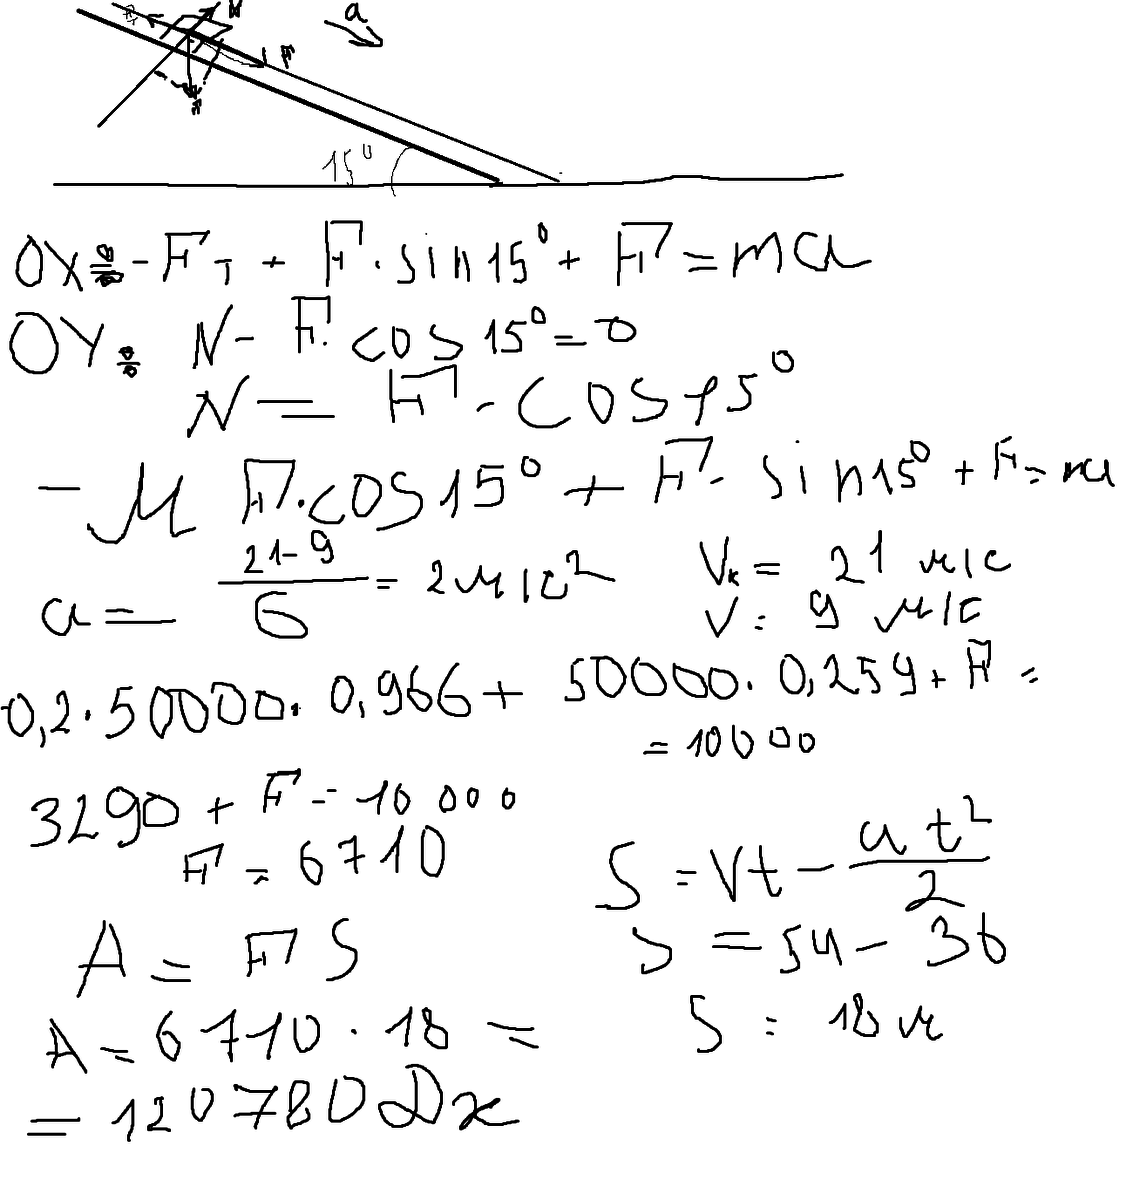 N
a
F
15°
OX: -Fт + F·sin15° + F = ma
OY: N - F·cos15° = 0
N = F·cos15°
-μF·cos15° + F·sin15° + F = ma
a = 21-9/6 = 2м/с²
Vк = 21 м/с
V = 9 м/с
0,2·50000·0,966 + 50000·0,259 + F =
= 10000
3290 + F = 10 000
F = 6710
S = Vt - at²/2
S = 54 - 36
S = 18 м
A = FS
A = 6710·18 =
= 120780 Дж